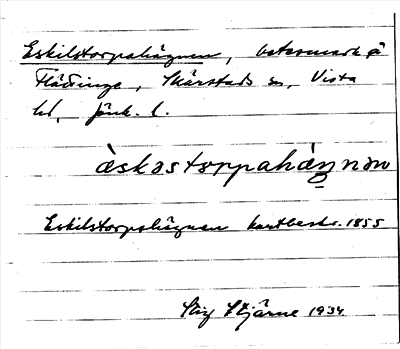 Eskilstorpahägnen, betesmark å
Flättinge, Skärstads sn, Vista
hd, Jönk. l.
àskastorpahàgnan
Eskilstorpahägnan kartbeskr. 1855
Stig Stjärne 1934